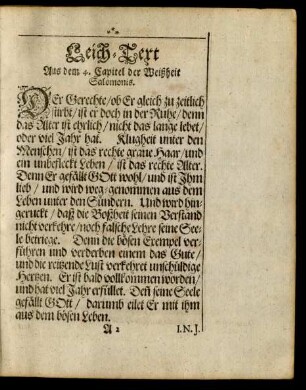 Leich-Text
Aus dem 4. Capitel der Weißheit
Salomonis.
DEr Gerechte/ ob Er gleich zu zeitlich
stirbt/ ist er doch in der Ruhe/ denn
das Alter ist ehrlich/ nicht das lange lebet/
oder viel Jahr hat. Klugheit unter den
Menschen/ ist das rechte graue Haar/ und
ein unbefleckt Leben/ ist das rechte Alter.
Denn Er gefällt GOtt wohl/ und ist Ihm
lieb/ und wird weg-genommen aus dem
Leben unter den Sündern. Und wird hin-
geruckt/ daß die Boßheit seinen Verstand
nicht verkehre/ noch falsche Lehre seine See-
le betriege. Denn die bösen Exempel ver-
führen und verderben einem das Gute/
und die reitzende Lust verkehret unschüldige
Hertzen. Er ist bald vollkommen worden/
und hat viel Jahr erfüllet. Deñ seine Seele
gefällt GOtt/ darumb eilet Er mit ihm
aus dem bösen Leben.
A 2 I.N.J.